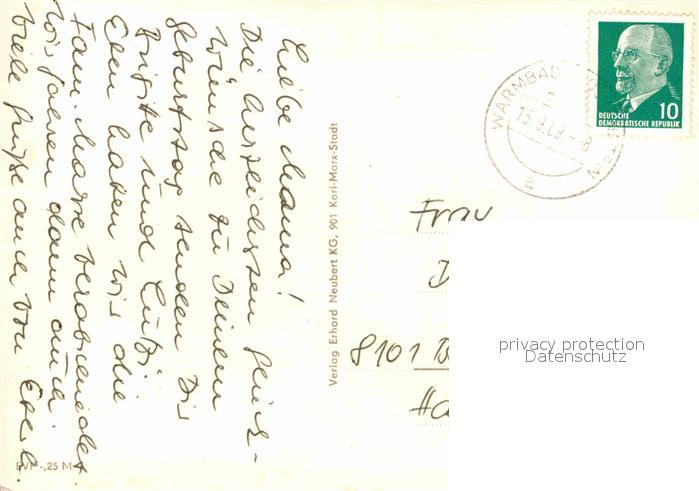 Liebe Mama!
Die herzlichsten Glück-
wünsche zu Deinem
Geburtstag senden Dir
Brigitte und
Eben haben wir die
Fam. verabschiedet
Wir fahren dann auch.
Viele Grüße auch von
EVP -,25 M
Verlag Erhard Neubert KG, 901 Karl-Marx-Stadt
WARMBAD
a
10
DEUTSCHE
DEMOKRATISCHE REPUBLIK
Frau
D
8101 B
Ha
privacy protection
Datenschutz